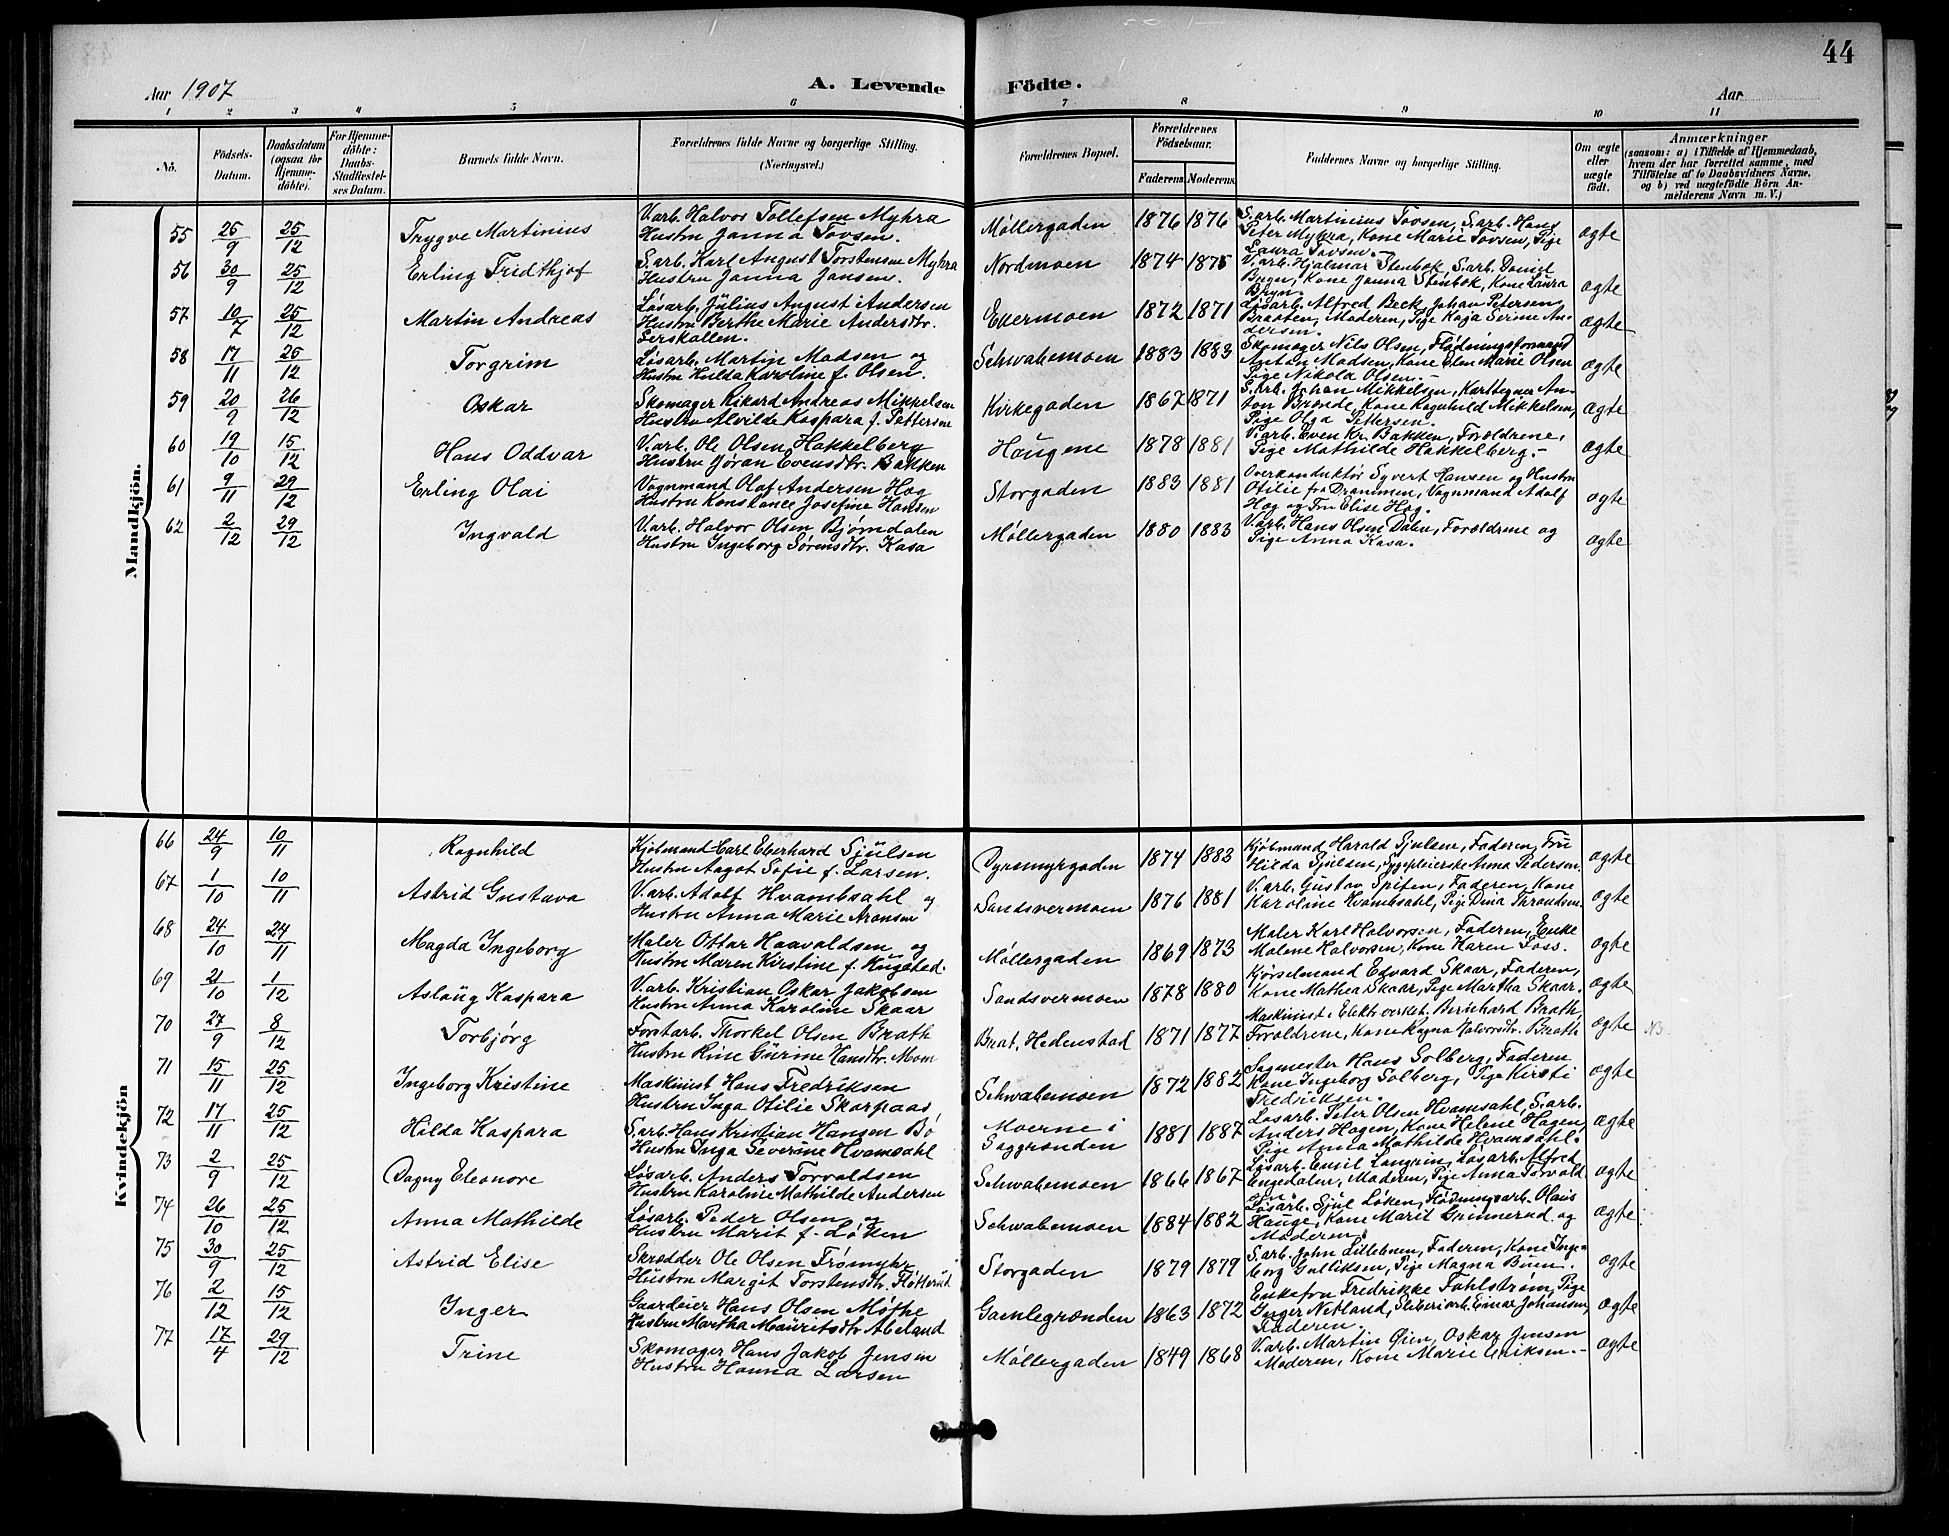 44
Aar 1907
A. Levende Födte.
Aar
1 2 3 4 5 6 7 8 9 10 11
No.
Födsels-Datum.
Daabsdatum (ogsaa for Hjemmedöbte).
For Hjemmedöbte: Daabs-Stadfæstelses Datum.
Barnets fulde Navn.
Forældrenes fulde Navne og borgerlige Stilling. (Næringsvei.)
Forældrenes Bopæl.
Forældrenes Födselsaar.
Faderens. Moderens.
Faddernes Navne og borgerlige Stilling.
Om ægte eller uægte födt.
Anmærkninger
(saasom: a) i Tilfælde af Hjemmedaab, hvem der har forrettet samme, med Tilföielse af to Daabsvidners Navne, og b) ved uægtefödte Börn Anmelderens Navn m. V.)
Mandkjön.
55 26/9 25/12 Trygve Martinius
V.arb. Halvor Tollefsen Myhra
Hustru Janna Tovsen.
Møllergaden 1876 1876
S.arb. Martinius Tovsen, S.arb. Hans
Peter Myhra, Kone Marie Tovsen, Pige
Laura Tovsen.
ægte
56 30/9 25/12 Erling Fridthjof
S.arb. Karl August Torstensen Myhra
Hustru Janna Jansen.
Nordmoen 1874 1875
V.arb. Hjalmar Stenbok, S.arb. Daniel
Bryn, Kone Janna Stenbok, Kone Laura
Bryn.
ægte
57 10/7 25/12 Martin Andreas
Løsarb. Julius August Andersen
Hustru Berthe Marie Andersdtr.
Gerskallen.
Evermoen 1872 1871
Løsarb. Alfred Beck, Johan Petersen
Braaten, Moderen, Pige Kaja Serine An-
dersen.
ægte
58 17/11 26/12 Torgrim
Løsarb. Martin Madsen og
Hustru Hulda Karoline f. Olsen.
Schwabemoen 1883 1883
Skomager Nils Olsen, Flødningsformand
Anton Madsen, Kone Elen Marie Olsen
Pige Nikola Olsen.-
ægte
59 20/9 26/12 Oskar
Skomager Rikard Andreas Mikkelsen
Hustru Alvilde Kaspara f. Pettersen
Kirkegaden 1867 1871
S.arb. Johan Mikkelsen, An-
ton Brænde, Kone Ragnhild Mikkelsen,
Pige Olga Pettersen.
ægte
60 19/10 15/12 Hans Oddvar
V.arb. Ole Olsen Hakkelberg
Hustru Jøran Evensdtr. Bakken
Haugene 1878 1881
V.arb. Even Kr. Bakken, Forældrene,
Pige Mathilde Hakkelberg.-
ægte
61 9/11 29/12 Erling Olai
Vognmand Olaf Andersen Hog
Hustru Konstance Josefine Hansen
Storgaden 1883 1881
Overkonduktør Syvert Hansen og Hustru
Otilie fra Drammen, Vognmand Adolf
Hog og Fru Elise Hog.
ægte
62 2/12 29/12 Ingvald
V.arb. Halvor Olsen Bjørndalen
Hustru Ingeborg Sørensdtr. Kasa
Møllergaden 1880 1883
V.arb. Hans Olsen Dalen, Forældrene og
Pige Anna Kasa.
ægte
Kvindekjön
66 24/9 10/11 Ragnhild
Kjøbmand Carl Eberhard Sjulsen
Hustru Aagot Sofie f. Larsen.
Dyrmyrgaden 1874 1883
Kjøbmand Harald Sjulsen, Faderen, Fru
Hilda Sjulsen, Sygepleierske Anna Pedersen.
ægte
67 1/10 10/11 Astrid Gustava
V.arb. Adolf Hvambsahl og
Hustru Anna Marie Aronsen
Sandsvermoen 1876 1881
V.arb. Gustav Spiten, Faderen, Kone
Karoline Hvambsahl, Pige Dina Throndsen.
ægte
68 24/10 24/11 Magda Ingeborg
Maler Ottar Haavaldsen og
Hustru Maren Kirstine f. Hugsted.
Møllergaden 1869 1873
Maler Karl Halvorsen, Faderen, Enke
Malene Halvorsen, Kone Karen Foss.
ægte
69 21/10 1/12 Aslaug Kaspara
V.arb. Kristian Oskar Jakobsen
Hustru Anna Karoline Skaar
Sandsvermoen 1878 1880
Kjørselmand Edvard Skaar, Faderen,
Kone Mathea Skaar, Pige Martha Skaar.
ægte
70 27/9 8/12 Torbjørg
Forstarb. Thorkel Olsen Brath
Hustru Rine Gurine Hansdtr. Mom
Brat, Hedenstad 1871 1877
Maskinist i Elektr.verket, Bernhard Brath,
Forældrene, Kone Ragna Halvorsdtr. Brath
ægte
71 15/11 25/12 Ingeborg Kristine
Maskinist Hans Fredriksen
Hustru Inga Otilie Skarpaas,
Schwabemoen 1872 1882
Sagmester Hans Solberg, Faderen
Kone Ingeborg Solberg, Pige Kirsti
Fredriksen.
ægte
72 17/11 25/12 Hilda Kaspara
S.arb. Hans Kristian Hansen Bø
Hustru Inga Severine Hvamsahl
Moerne i
Saggrænden 1881 1887
Løsarb. Peter Olsen Hvamsahl, S.arb.
Anders Hagen, Kone Helene Hagen,
Pige Anna Mathilde Hvamsahl.
ægte
73 2/9 25/12 Dagny Eleonore
Løsarb. Anders Torvaldsen
Hustru Karoline Mathilde Andersen
Schwabemoen 1866 1867
Løsarb. Emil Langrin, Løsarb. Alfred
Engedalen, Moderen, Pige Anna Torvald-
sen.
ægte
74 26/10 25/12 Anna Mathilde
Løsarb. Peder Olsen og
Hustru Marit f. Løken
Schwabemoen 1884 1882
Løsarb. Sjul Løken, Flødningsarb. Olaus
Hauge, Kone Marit Grinnerud og
Moderen.
ægte
75 30/9 25/12 Astrid Elise
Skrædder Ole Olsen Frømyhr
Hustru Margit Torstensdtr. Fløtterud
Storgaden 1879 1879
S.arb. John Lillebuen, Faderen, Kone Inge-
borg Gulliksen, Pige Magna Buen.
ægte
76 2/12 15/12 Inger
Gaardeier Hans Olsen Møthe
Hustru Martha Mauritsdtr. Abeland
Gamlegrænden 1863 1872
Enkefru Fredrikke Fahlstrøm, Pige
Inger Netland, Sliberiarb. Einar Johansen,
Faderen.
ægte
77 17/4 29/12 Trine
Skomager Hans Jakob Jensen
Hustru Hanna Larsen
Møllergaden 1849 1868
V.arb. Martin Øien, Oskar Jensen
Moderen, Kone Marie Eriksen.-
ægte